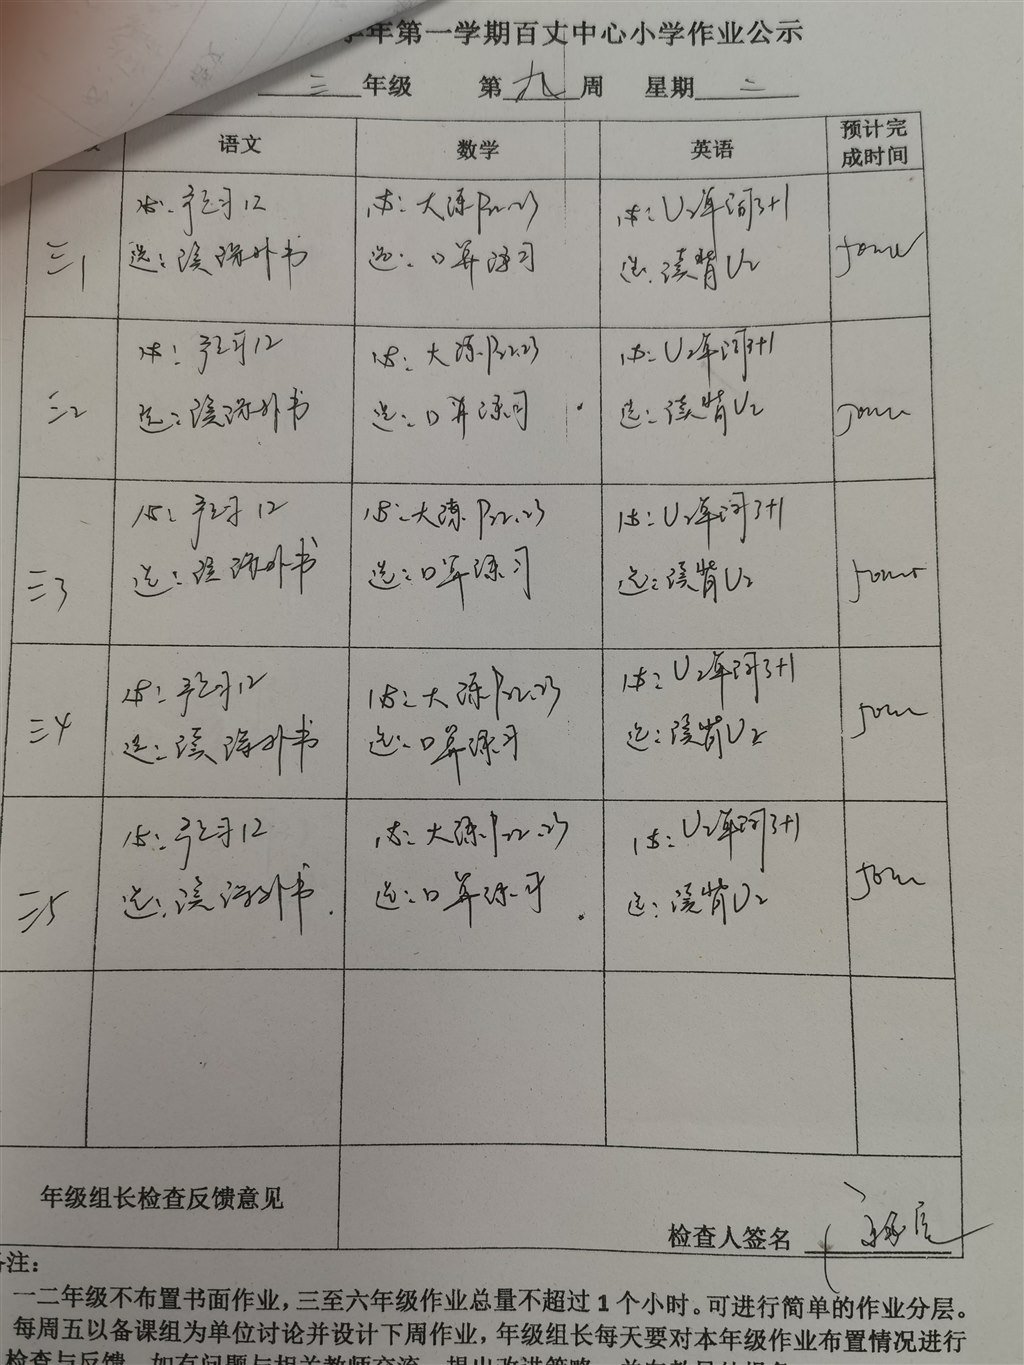 学年第一学期百丈中心小学作业公示
三 年级 第 九 周 星期 二
语文 数学 英语 预计完
成时间
三1 必: 12 必: 大练P22.23 必: U2单词3+1 50min
选: 读课外书 选: 口算练习 选: 读背U2
三2 必: 12 必: 大练P22.23 必: U2单词3+1 50min
选: 读课外书 选: 口算练习 选: 读背U2
三3 必: 12 必: 大练P22.23 必: U2单词3+1 50min
选: 读课外书 选: 口算练习 选: 读背U2
三4 必: 12 必: 大练P22.23 必: U2单词3+1 50min
选: 读课外书 选: 口算练习 选: 读背U2
三5 必: 12 必: 大练P22.23 必: U2单词3+1 50min
选: 读课外书 选: 口算练习 选: 读背U2
年级组长检查反馈意见
检查人签名
注:
一二年级不布置书面作业，三至六年级作业总量不超过 1 个小时。可进行简单的作业分层。
每周五以备课组为单位讨论并设计下周作业，年级组长每天要对本年级作业布置情况进行
检查与反馈